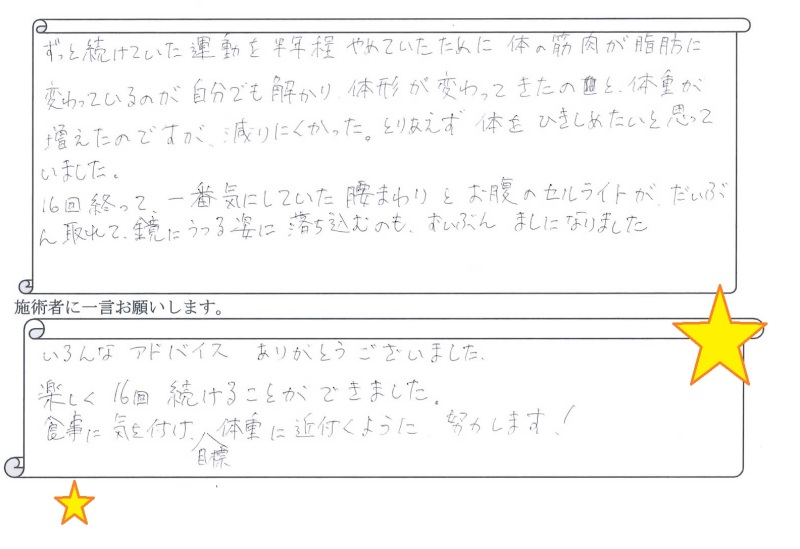 ずっと続けていた運動を半年程やめていたために体の筋肉が脂肪に
変わっているのが自分でも解かり、体形が変わってきたのと、体重が
増えたのですが、減りにくかった。とりあえず体をひきしめたいと思って
いました。
16回終って、一番気にしていた腰まわりとお腹のセルライトが、だいぶ
ん取れて、鏡にうつる姿に落ち込むのも、ずいぶんましになりました
施術者に一言お願いします。
いろんなアドバイスありがとうございました。
楽しく16回続けることができました。
食事に気を付け、目標体重に近付くように努力します!